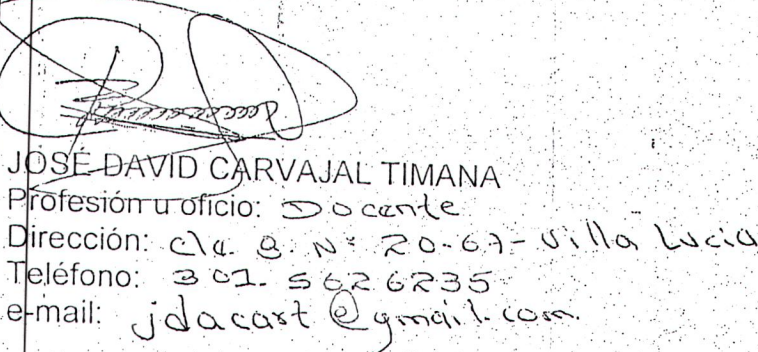 JOSÉ DAVID CARVAJAL TIMANA
Profesión u oficio: Docente
Dirección: Cla. 8. Nº 20-67- Villa Lucia
Teléfono: 301. 5626235
e-mail: jdacart@gmail.com.